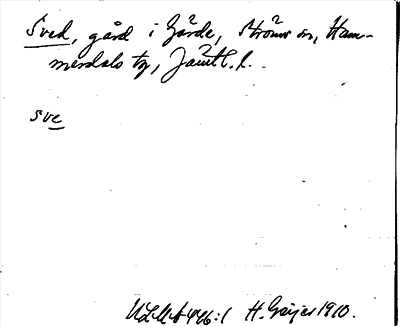 Sved, gård i Gärde, Ströms sn, Ham-
merdals tg, Jämtl. l.
sve
ULMA 446:1 H. Geijer 1910.